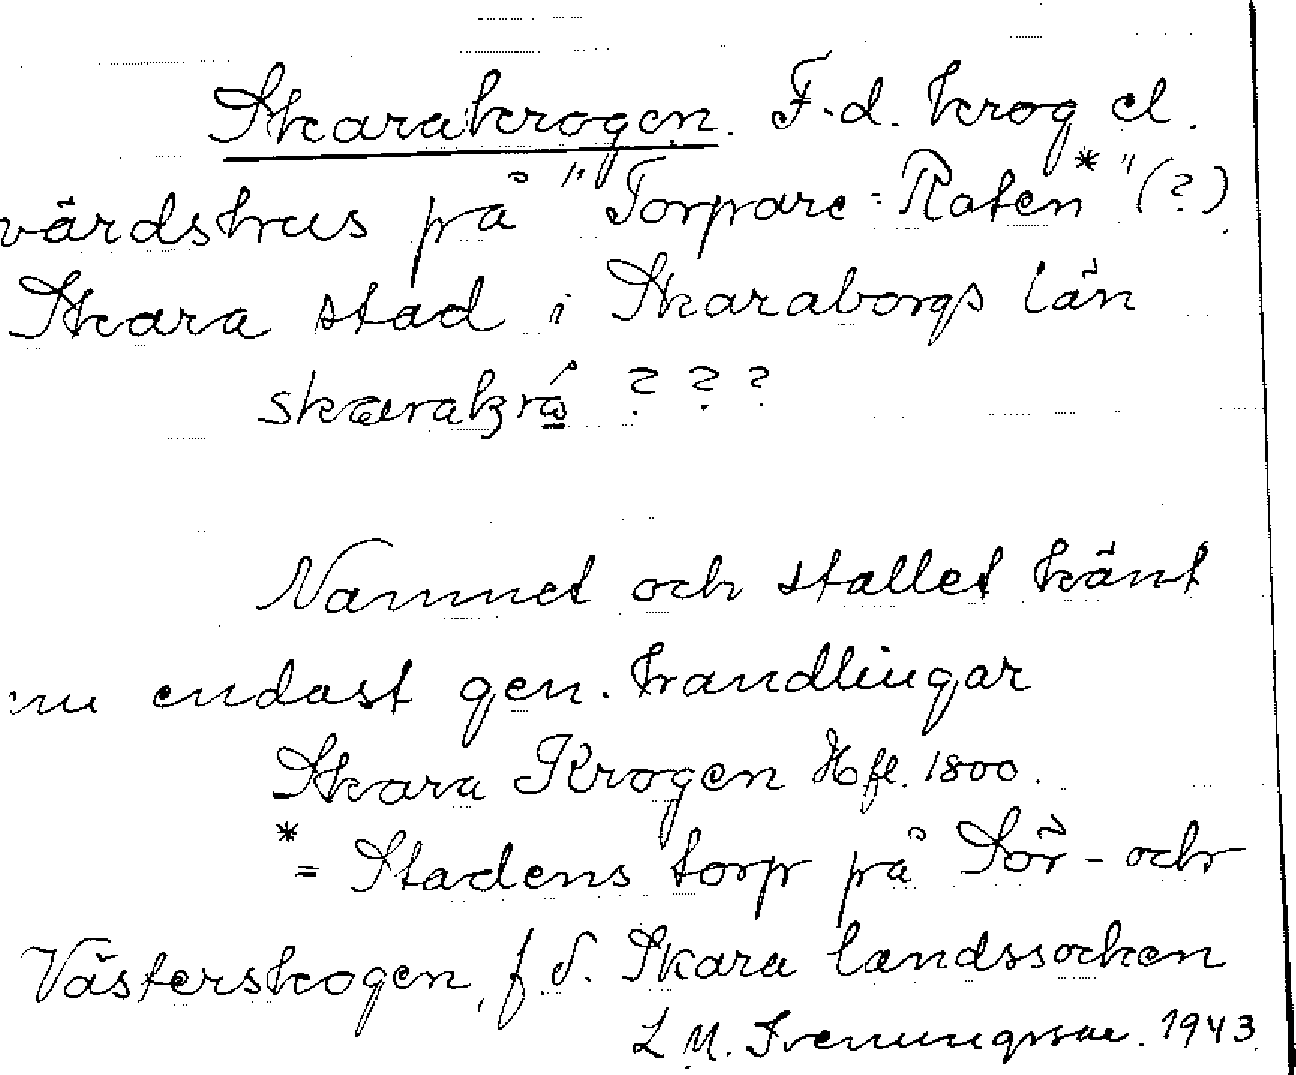 Skarakrogen. F.d. krog el.
värdshus på "Torpare=Roten*" (?)
Skara stad i Skaraborgs län
skarakrå ? ? ?
Namnet och stället känt
nu endast gen. handlingar
Skara Krogen Hfl. 1800.
* = Stadens torp på Sör- och
Västerskogen, f.d. Skara landssocken
L M. 1943